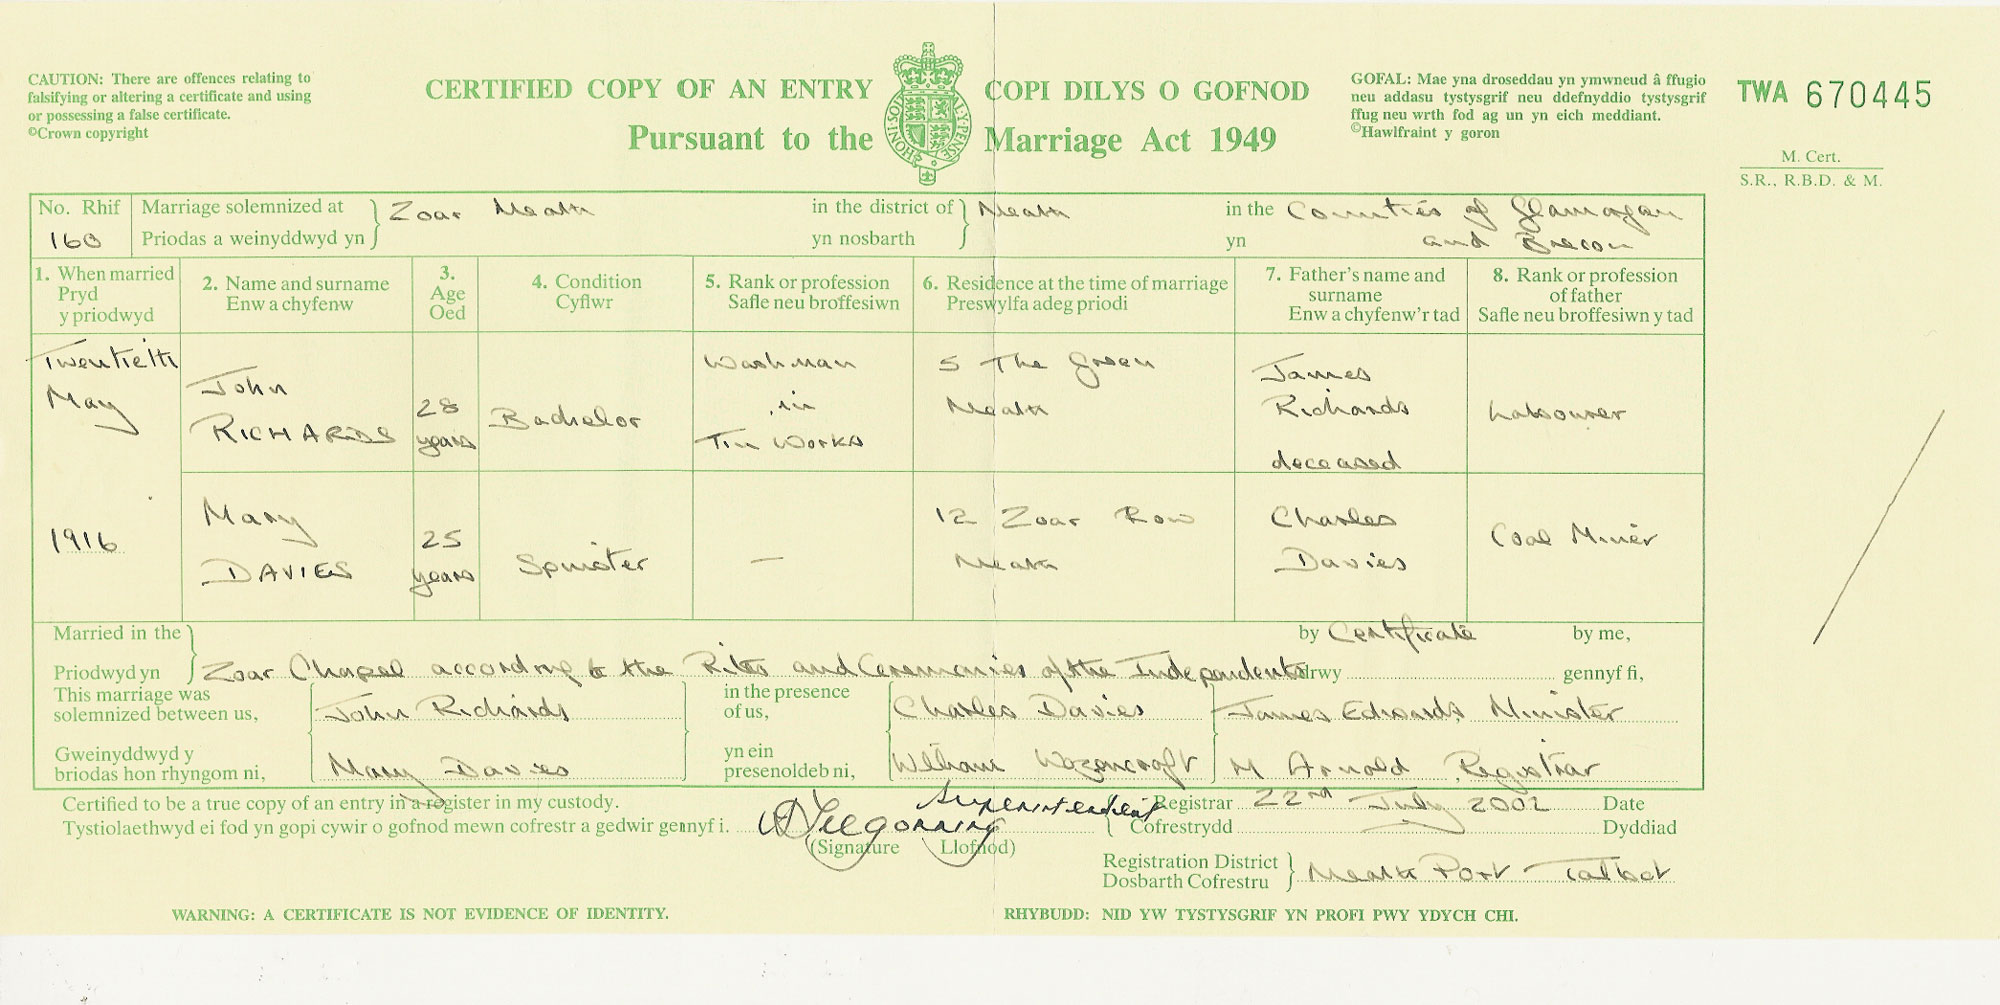 CAUTION: There are offences relating to
falsifying or altering a certificate and using
or possessing a false certificate.
©Crown copyright
CERTIFIED COPY OF AN ENTRY
Pursuant to the
COPI DILYS O GOFNOD
Marriage Act 1949
GOFAL: Mae yna droseddau yn ymwneud â ffugio
neu addasu tystysgrif neu ddefnyddio tystysgrif
ffug neu wrth fod ag un yn eich meddiant.
©Hawlfraint y goron
TWA 670445
M. Cert.
S.R., R.B.D. & M.
No. Rhif
160
Marriage solemnized at
Priodas a weinyddwyd yn
Zoar Neath
in the district of
yn nosbarth
Neath
in the
yn
Counties of Glamorgan
and Brecon
1. When married
Pryd
y priodwyd
2. Name and surname
Enw a chyfenw
3.
Age
Oed
4. Condition
Cyflwr
5. Rank or profession
Safle neu broffesiwn
6. Residence at the time of marriage
Preswylfa adeg priodi
7. Father's name and
surname
Enw a chyfenw'r tad
8. Rank or profession
of father
Safle neu broffesiwn y tad
Twentieth
May
1916
John
RICHARDS
28
years
Bachelor
Washman
in
Tin Works
5 The Green
Neath
James
Richards
deceased
Labourer
Mary
DAVIES
25
years
Spinster
—
12 Zoar Row
Neath
Charles
Davies
Coal Miner
Married in the
Priodwyd yn
Zoar Chapel according to the Rites and Ceremonies of the Independents
by Certificate by me,
drwy gennyf fi,
This marriage was
solemnized between us,
Gweinyddwyd y
briodas hon rhyngom ni,
John Richards
Mary Davies
in the presence
of us,
yn ein
presenoldeb ni,
Charles Davies
William Wozencroft
James Edwards Minister
M Arnold Registrar
Certified to be a true copy of an entry in a register in my custody.
Tystiolaethwyd ei fod yn gopi cywir o gofnod mewn cofrestr a gedwir gennyf i.
(Signature Llofnod)
Superintendent
Registrar
Cofrestrydd
22nd July 2002
Date
Dyddiad
Registration District
Dosbarth Cofrestru
Neath Port Talbot
WARNING: A CERTIFICATE IS NOT EVIDENCE OF IDENTITY.
RHYBUDD: NID YW TYSTYSGRIF YN PROFI PWY YDYCH CHI.